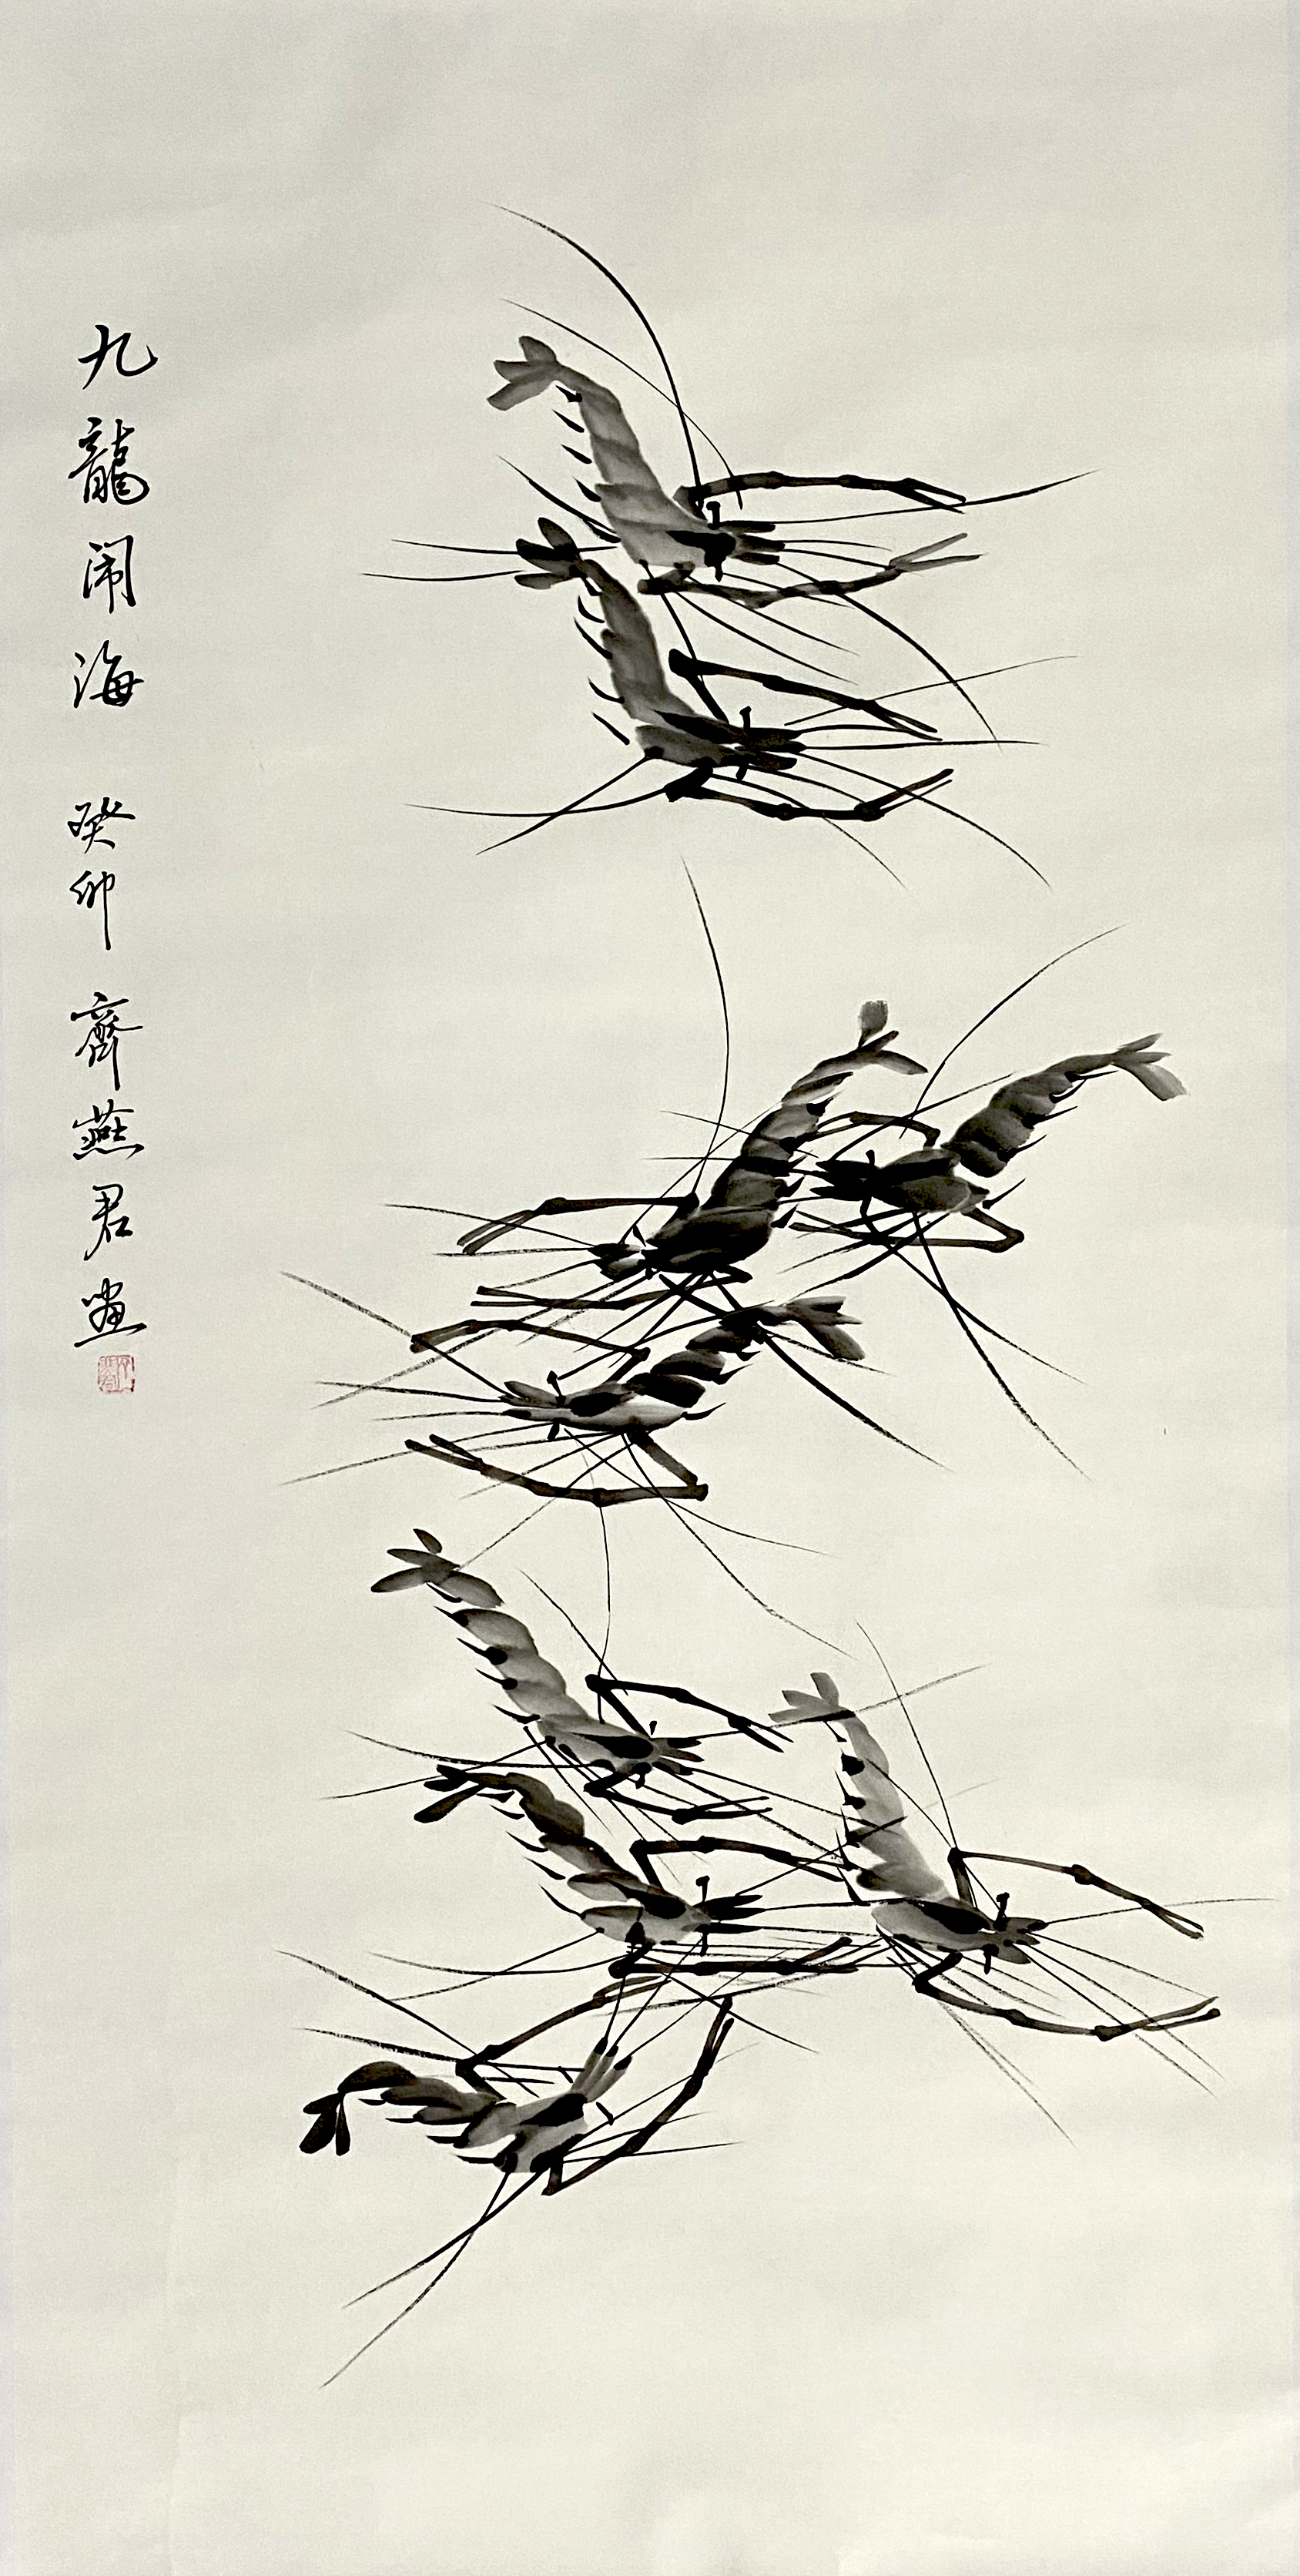 九龍闹海 癸卯 齊燕君畫